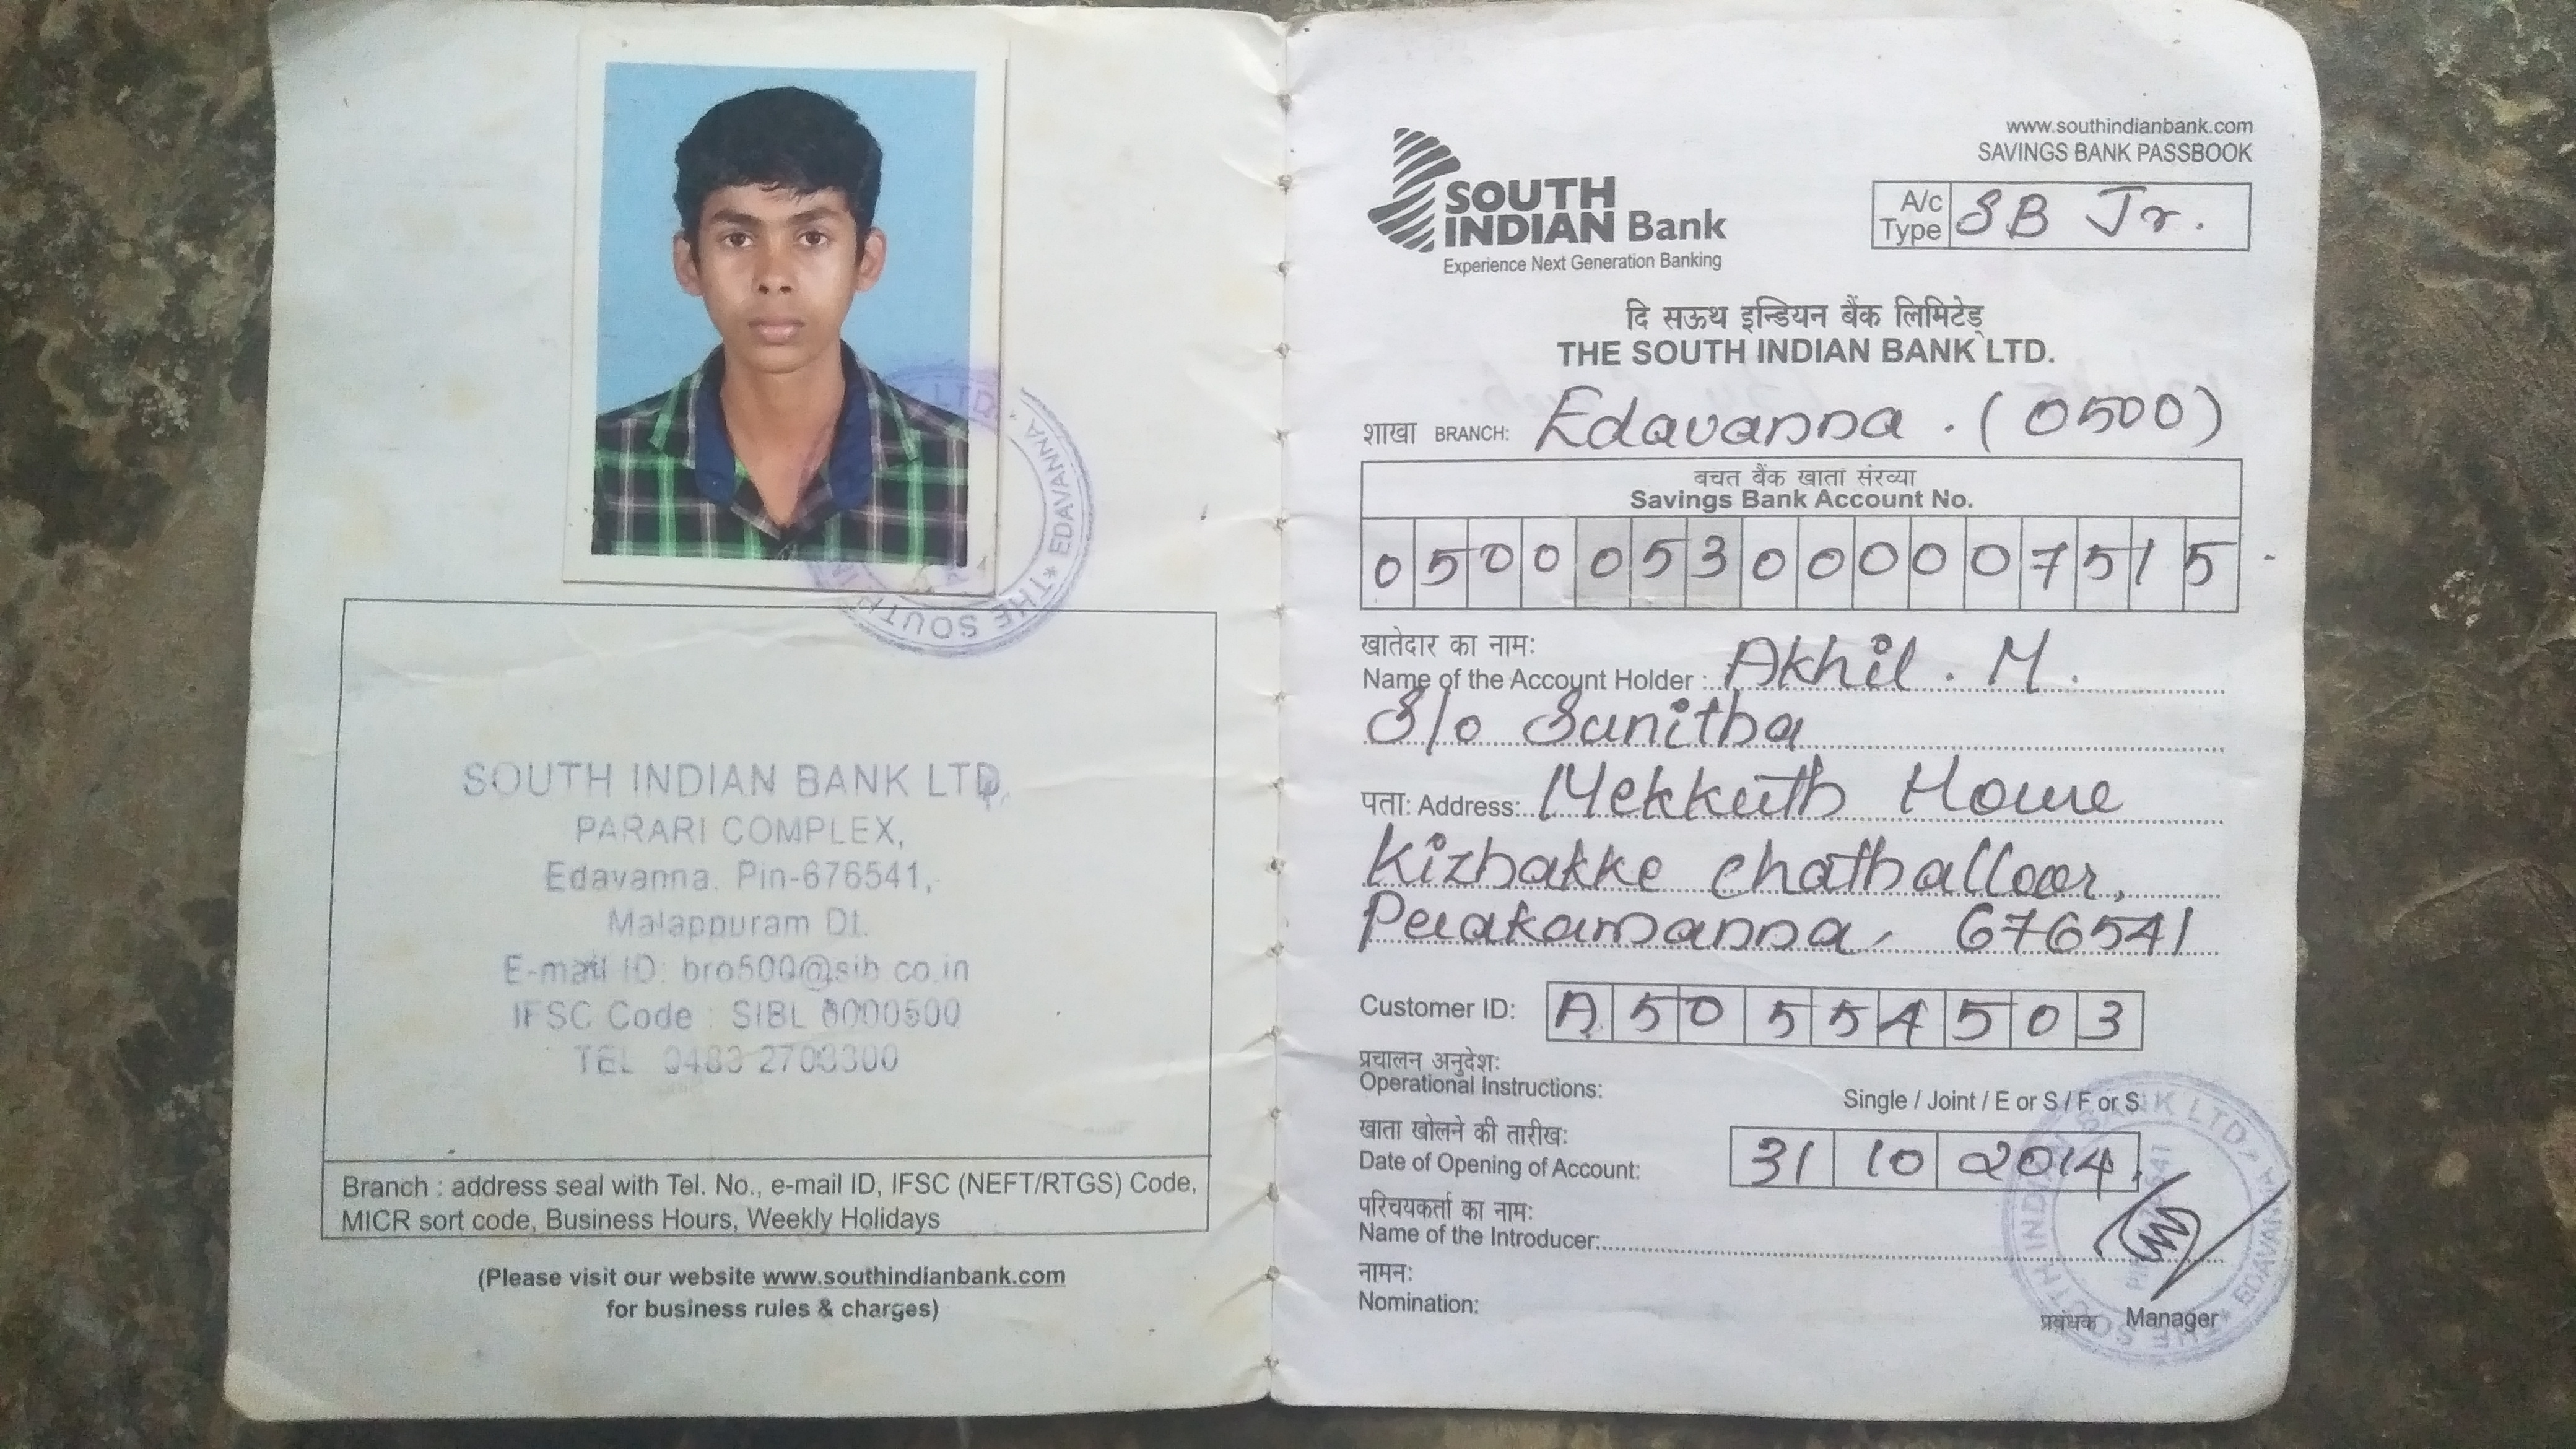 SOUTH INDIAN BANK LTD.
PARARI COMPLEX,
Edavanna. Pin-676541,
Malappuram Dt.
E-mail ID: bro500@sib.co.in
IFSC Code : SIBL 0000500
TEL 0483 2703300
Branch : address seal with Tel. No., e-mail ID, IFSC (NEFT/RTGS) Code,
MICR sort code, Business Hours, Weekly Holidays
(Please visit our website www.southindianbank.com
for business rules & charges)
THE SOUTH LTD. * EDAVANNA
www.southindianbank.com
SAVINGS BANK PASSBOOK
SOUTH
INDIAN Bank
Experience Next Generation Banking
A/c Type SB Jr.
दि सऊथ इन्डियन बैंक लिमिटेड्
THE SOUTH INDIAN BANK LTD.
शाखा BRANCH: Edavanna . (0500)
बचत बैंक खाता संख्या
Savings Bank Account No.
0500053000007515
खातेदार का नामः
Name of the Account Holder : Akhil . M .
S/o Sunitha
पताः Address: Mekkuth House
Kizhakke chathalloor,
Perakamanna, 676541
Customer ID: A50554503
प्रचालन अनुदेशः
Operational Instructions: Single / Joint / E or S / F or S
खाता खोलने की तारीखः
Date of Opening of Account: 31 10 2014
परिचयकर्ता का नामः
Name of the Introducer:
नामनः
Nomination:
प्रबंधक Manager
THE SOUTH INDIAN BANK LTD. * EDAVANNA